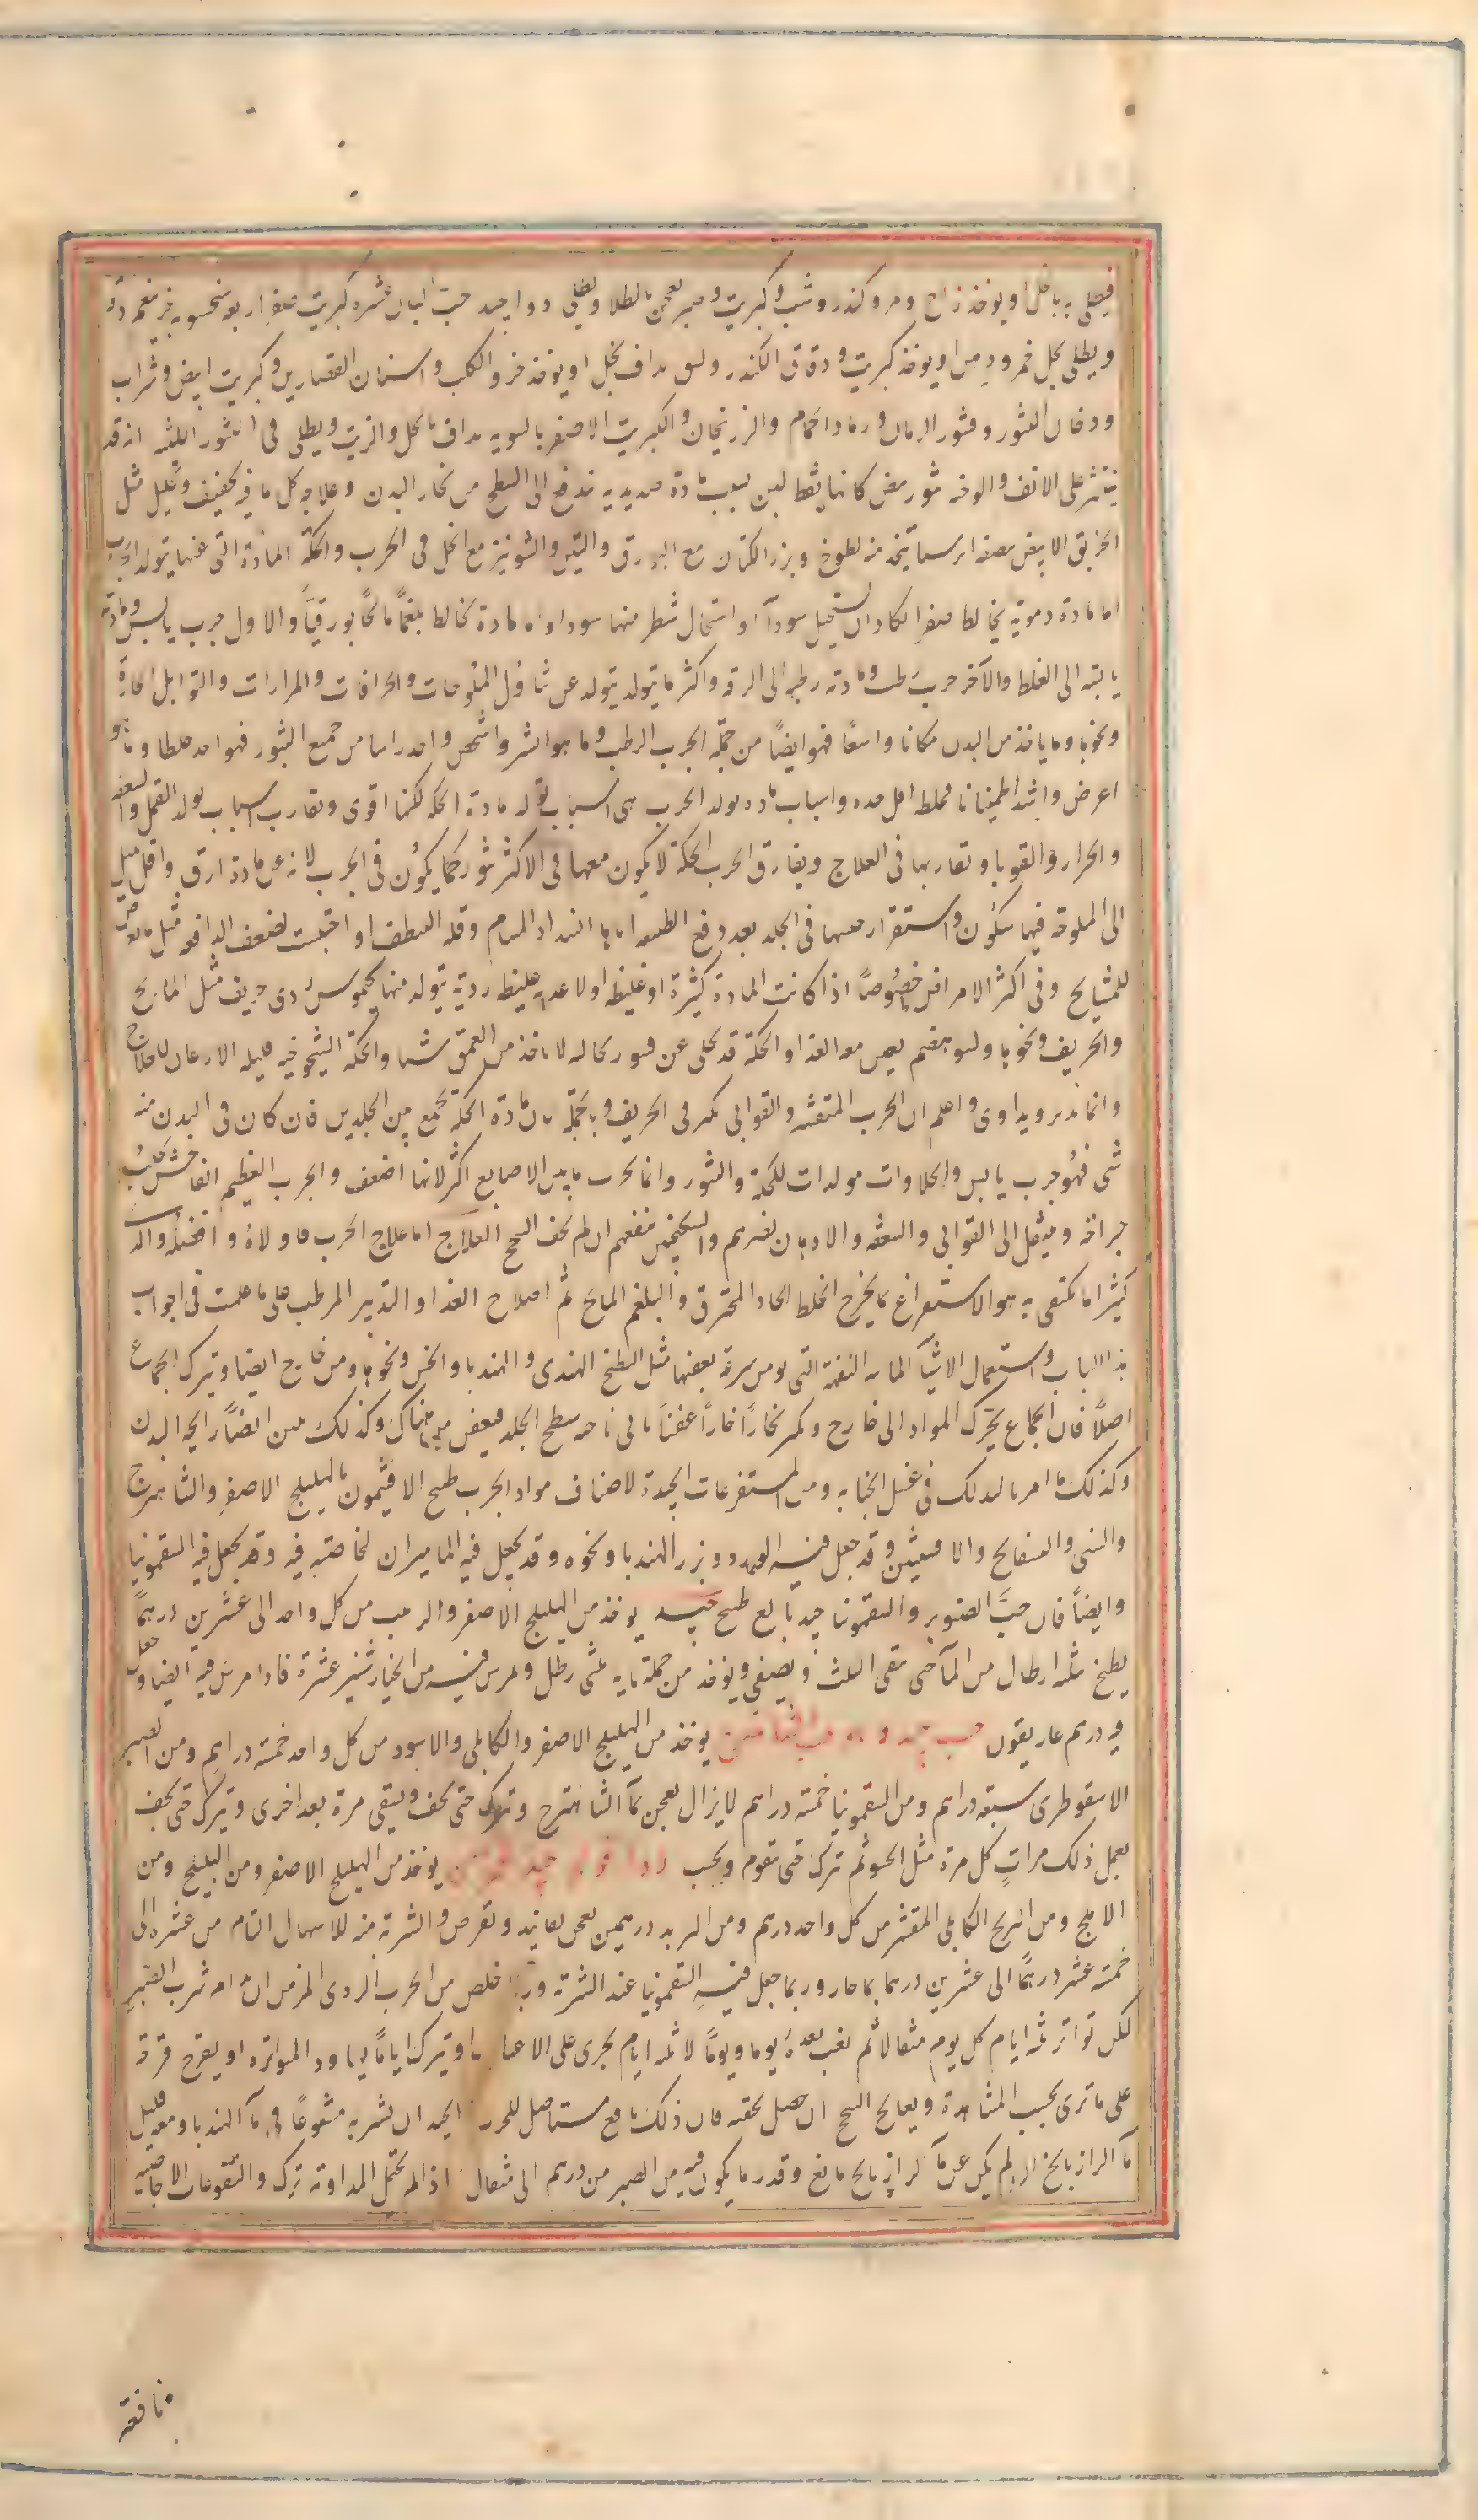 فيطلى به بالخل او يوخذ زاج ومر وكندر وشب وكبريت وصبر يعجن بالطلا ويطلى دوا جيد حب البان عشره كبريت صفر اربعه
ويطلى بخل خمر ودهن او يوخذ كبريت ودقاق الكندر مداف بخل او يوخذ خرو الكلب واسنان العصارين وكبريت ابيض وشراب
ودخان التنور وقشور الرمان ورماد الحمام والزرنيخان والكبريت الاصفر بالسويه مداف بالخل والزيت ويطلى فى البثور اللبنيه انه قد
يتبثر على الانف والوجه بثور بيض كانها نقط لبن بسبب مادة صديديه تندفع الى السطح من بخار البدن وعلاجه كل ما فيه تجفيف وتحليل مثل
الخربق الابيض بنصفه ايرسا يتخذ منه لطوخ وبزر الكتان مع البورق والتين والشونيز مع الخل فى الجرب والحكة المادة التى عنها يتولد الجرب
اما مادة دموية تخالط صفرا تكاد ان تستحيل سودآ او استحال شطر منها سودا واما مادة تخالط بلغمًا مالحًا بورقيًا والاول جرب يابس ومادته
يابسة الى الغلظ والآخر جرب رطب ومادته رطبه الى الرقه واكثر ما يتولد يتولد عن تناول الملوحات والحرافات والمرارات والتوابل الحارة
ونحوها وما ياخذ من البدن مكانا واسعًا فهو ايضًا من جملة الجرب الرطب وما هو انشز واشخص واحد راسا من جميع البثور فهو احد خلطا وما هو
اعرض واشد اطمينانا فخلطه اقل حده واسباب ماده تولد الجرب هى اسباب تولد مادة الحكه لكنها اقوى وتقارب اسباب تولد القمل والسعفه
والحزاز والقوبا وتقاربها فى العلاج ويفارق الجرب الحكة لا يكون معها فى الاكثر بثور كما يكون فى الجرب لانه عن مادة ارق واقل ميل
الى الملوحة فيها سكون واستقرار معها فى الجلد بعد دفع الطبيعه اياها انسداد المسام وقلة التنظف او احتبست لضعف الدافعه مثل ما يعرض
للمشايخ وفى اكثر الامراض خصوصًا اذا كانت المادة كثيرة او غليظه او لاغذيه غليظه ردية يتولد منها كيموس ردى حريف مثل المالح
والحريف ونحوها ولسو هضم يعين معه الغذا والحكة قد تخلو عن قشور نخاله لا ياخذ من العمق شيا والحكة الشيخوخيه قليله الاذعان للعلاج
وانما تدبر ويداوى واعلم ان الجرب المتقشر والقوابى تكثر فى الخريف وبالجملة فان مادة الحكة تجمع بين الجلدين فان كان فى البدن منه
شى فهو جرب يابس والحلاوات مولدات للحكة والبثور وانما يجرب ما بين الاصابع اكثر لانها اضعف والجرب العظيم الفاحش
جراحة وينتقل الى القوابى والسعفه والادهان تضرهم والسكنجبين ينفعهم ان لم يخف السحج العلاج اما علاج الجرب فاولاه وافضله والذى
كثيرا ما يكتفى به هو الاستفراغ بما يخرج الخلط الحاد المحترق والبلغم المالح ثم اصلاح الغذا والتدبير المرطب على ما علمت فى ابواب
هذا الباب واستعمال الاشيا المائيه التفهة التى يومن سرعة تعفنها مثل البطيخ الهندى والهندبا والخس ونحوها ومن خارج ايضا وترك الجماع
اصلًا فان الجماع يحرك المواد الى خارج ويثير بخارًا حارًا عفنًا ياتى ناحيه سطح الجلد فيعفن ما هناك وكذلك منتن ايضًا رايحه البدن
وكذلك ما امر بالدلك فى غسل الجنابه ومن المستفرغات الجيدة لاصناف مواد الجرب طبيخ الافتيمون بالهليلج الاصفر والشاهترج
والسنى والبسفايج والافسنتين وقد جعل فيه الورد وبزر الهندبا ونحوه وقد يجعل فيه الماميران لخاصته فيه وقد يجعل فيه السقمونيا
وايضًا فان حب الصنوبر والسقمونيا جيد بالغ طبيخ جيد يوخذ من الهليلج الاصفر والزبيب من كل واحد الى عشرين درهمًا
يطبخ بثلثه ارطال من المآ حتى يبقى الثلث ويصفى ويوخذ من جملة مايه ثلثى رطل ويمرس فيه من الخيار شنبر عشرة فاذا مرس فيه ايضا جعل
فيه درهم غاريقون حب جيد يوخذ من الهليلج الاصفر والكابلى والاسود من كل واحد خمسة دراهم ومن الصبر
الاسقوطرى سبعة دراهم ومن السقمونيا خمسة دراهم لا يزال يعجن بمآ الشاهترج وتترك حتى يجف ويسقى مرة بعد اخرى ويترك حتى يجف
يعمل ذلك مرات كل مرة مثل الحسو ثم ترك حتى تقوم ويحبب جيد يوخذ من الهليلج الاصفر ومن البليلج ومن
الاملج ومن البرنج الكابلى المقشر من كل واحد درهم ومن التربد درهمين يعجن بفانيد وتقرص والشربة منه للاسهال التام من عشره الى
خمسة عشر درهمًا الى عشرين درهما بما حار وربما جعل فيه السقمونيا عند الشربة وربما خلص من الجرب الردى المزمن ادامه شرب الصبر
لكن تواتر ثلثه ايام كل يوم مثقالا ثم يغب بعده يوما ويومًا لا ثلثه ايام يجرى على الاغباب او يترك ايامًا ثم يعاود المواتره او يفرح فرحة
على ما ترى بحسب المشاهدة ويعالج السحج ان حصل بحقنه فان ذلك نافع مستاصل للجرب الجيد ان يشربه منقوعًا فى مآ الهندبا ومعه قليل
مآ الرازيانج ان لم يكن عن مآ الرازيانج مانع وقدر ما يكون فيه من الصبر من درهم الى مثقال اذا لم يحتمل المداومه ترك والنقوعات الاجاصيه
نافعة